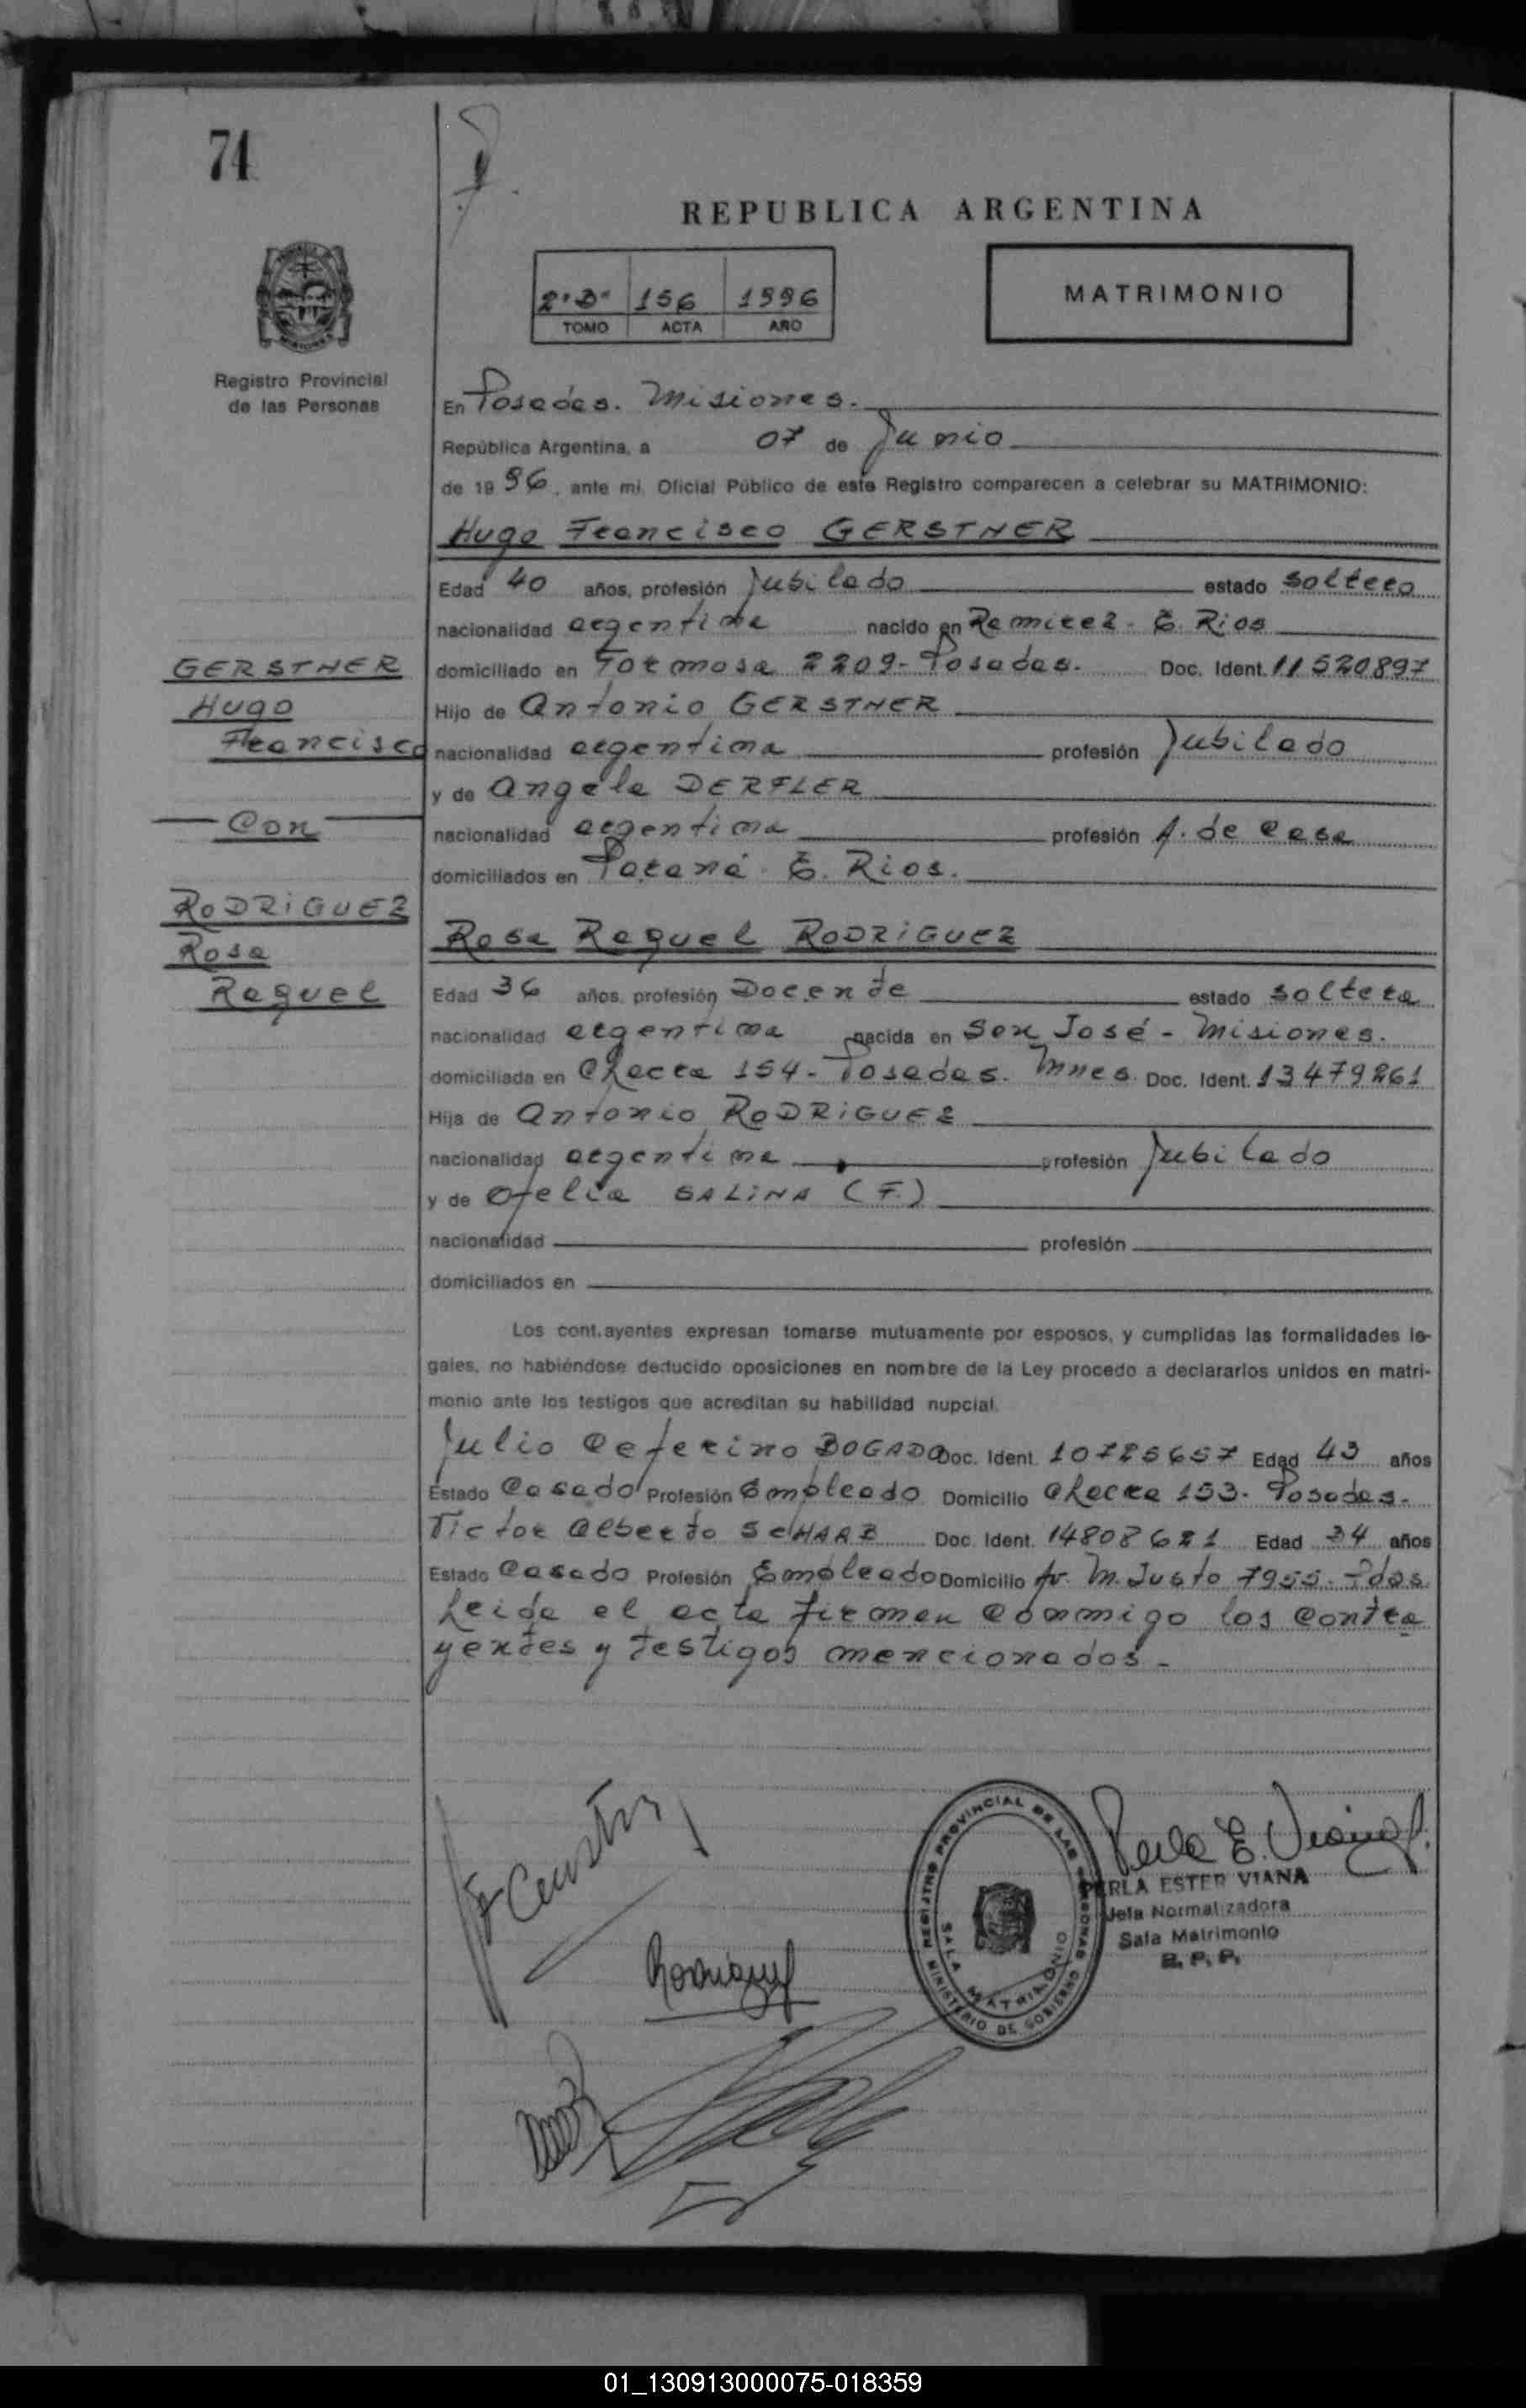 74
REPUBLICA ARGENTINA
2º "D" 156 1996
TOMO ACTA AÑO
MATRIMONIO
Registro Provincial
de las Personas
En Posadas. Misiones.
República Argentina, a 07 de Junio
de 19 96, ante mi, Oficial Público de este Registro comparecen a celebrar su MATRIMONIO:
Hugo Francisco GERSTNER
Edad 40 años, profesión Jubilado estado soltero
nacionalidad argentina nacido en Ramirez - E. Rios
GERSTNER
Hugo
Francisco
Con
RODRIGUEZ
Rosa
Raquel
domiciliado en Formosa 2209 - Posadas. Doc. Ident. 11520897
Hijo de Antonio GERSTNER
nacionalidad argentina profesión Jubilado
y de Angela DERFLER
nacionalidad argentina profesión A. de casa
domiciliados en Paraná - E. Rios.
Rosa Raquel RODRIGUEZ
Edad 36 años, profesión Docente estado soltera
nacionalidad argentina nacida en San José - Misiones.
domiciliada en Chacra 154 - Posadas. Mnes. Doc. Ident. 13479261
Hija de Antonio RODRIGUEZ
nacionalidad argentina profesión Jubilado
y de Ofelia SALINA (F.)
nacionalidad profesión
domiciliados en
Los cont.ayentes expresan tomarse mutuamente por esposos, y cumplidas las formalidades le-
gales, no habiéndose deducido oposiciones en nombre de la Ley procedo a declararlos unidos en matri-
monio ante los testigos que acreditan su habilidad nupcial.
Julio Ceferino BOGADO Doc. Ident. 10725657 Edad 43 años
Estado Casado Profesión Empleado Domicilio Chacra 153 - Posadas.
Victor Alberto SCHAAB Doc. Ident. 14808621 Edad 34 años
Estado Casado Profesión Empleado Domicilio Av. M. Justo 7955 - Pdas.
Leida el acta firman conmigo los contra
yentes y testigos mencionados -
Rodriguez
REGISTRO PROVINCIAL DE LAS PERSONAS
SALA MATRIMONIO
MINISTERIO DE GOBIERNO
Perla E. Viana
PERLA ESTER VIANA
Jefa Normalizadora
Sala Matrimonio
R. P. P.
01_130913000075-018359